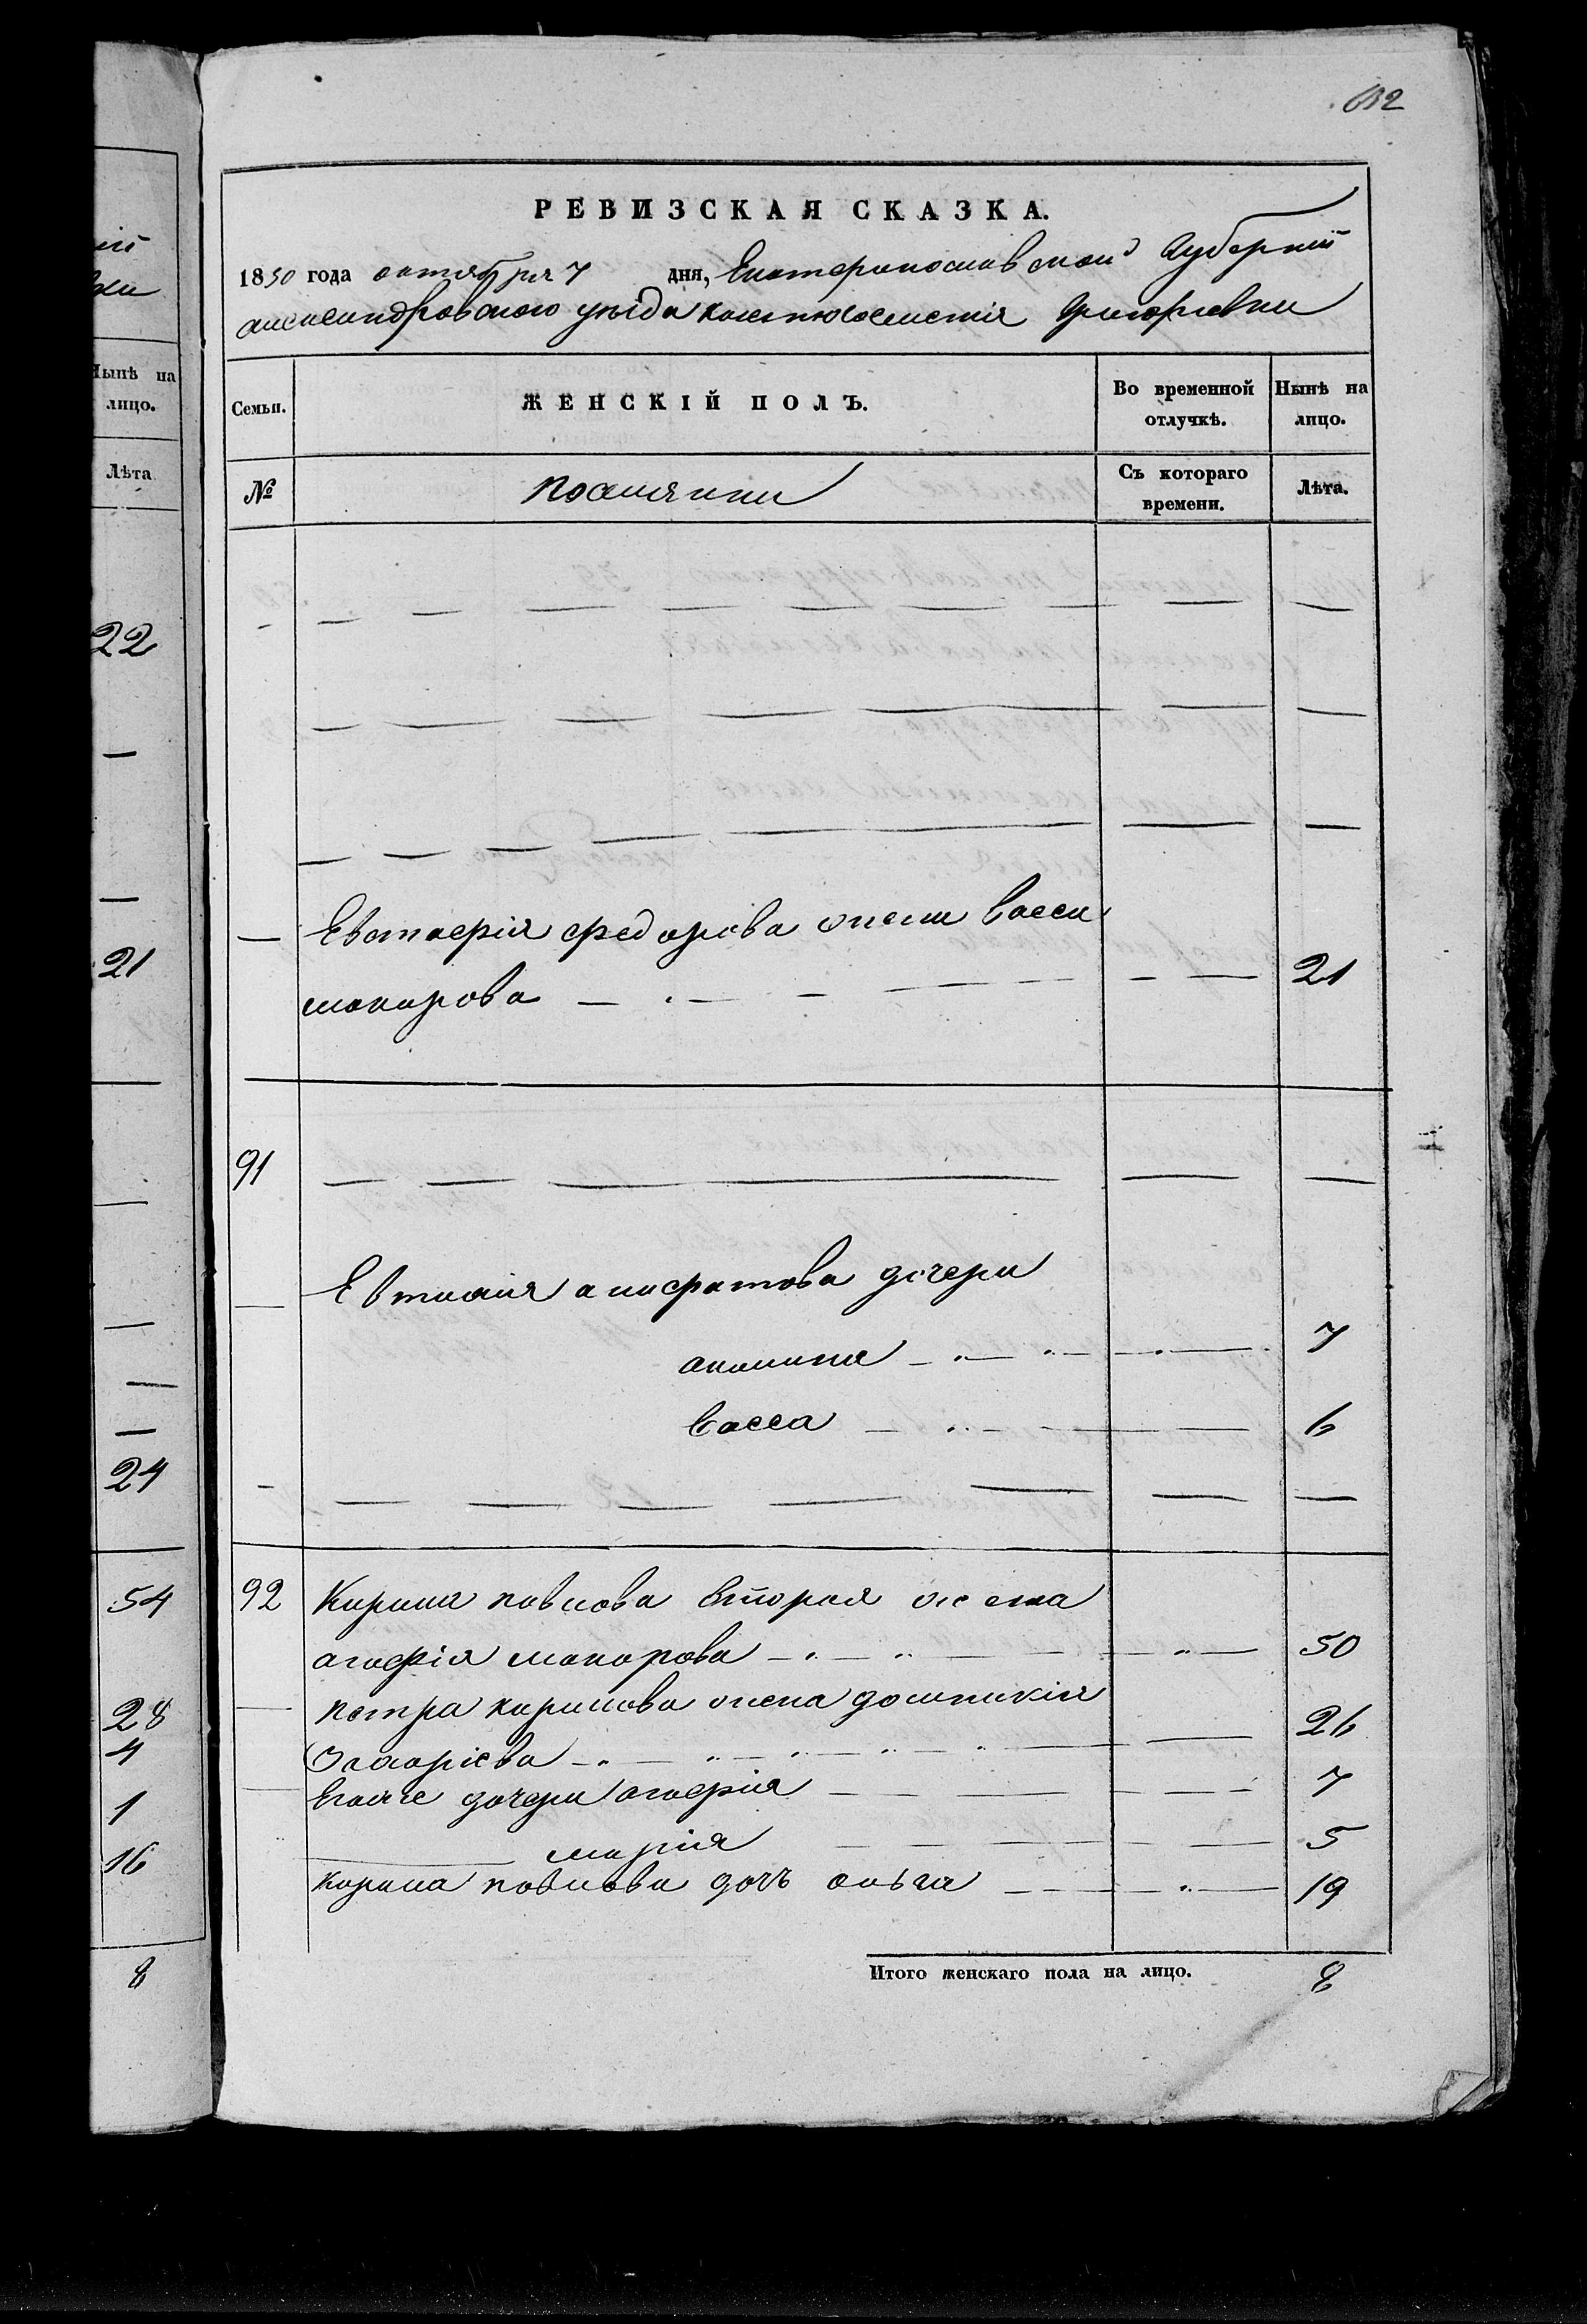 632
РЕВИЗСКАЯ СКАЗКА.
1850 года октября 7 дня, Екатеринославской Губернии
александровского уезда Григориевки
Семьи.
ЖЕНСКІЙ ПОЛЪ.
Во временной отлучкѣ.
Нынѣ на лицо.
№
поселянки
Съ котораго времени.
Лѣта.
Евстафія федорова жена Васса
макарова 21
91
Евтихія анифатова дочери
акилина 7
Васса 6
92 Кирила павлова вторая жена
агафія макарова 50
петра кирилова жена домникія
Захаріева 26
Егоже дочери агафія 7
марія 5
кирила павлова дочь ольга 19
Итого женскаго пола на лицо. 8
Нынѣ на
лицо.
Лѣта
22
21
24
54
28
4
1
16
8